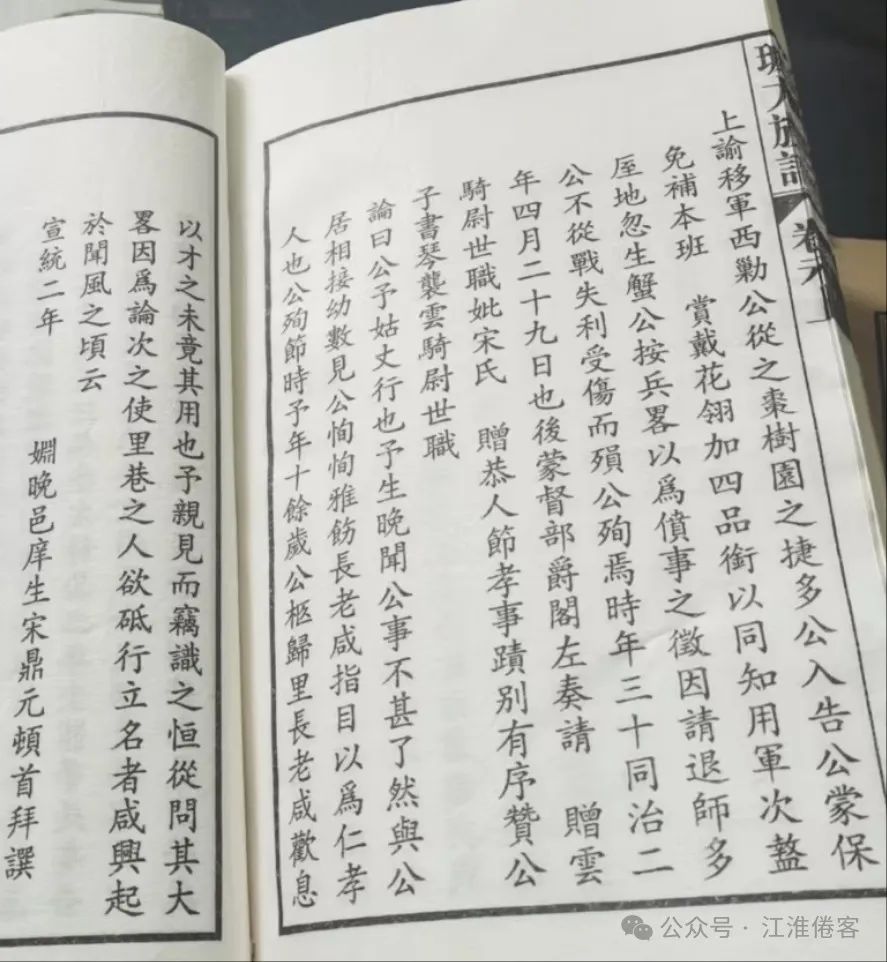 族譜
卷六
上諭移軍西勦公從之棗樹園之捷多公入告公蒙保
免補本班　賞戴花翎加四品銜以同知用軍次盩
厔地忽生蟹公按兵畧以爲僨事之徵因請退師多
公不從戰失利受傷而殞公殉焉時年三十同治二
年四月二十九日也後蒙督部爵閣左奏請　贈雲
騎尉世職妣宋氏　贈恭人節孝事蹟别有序贊公
子書琴襲雲騎尉世職
論曰公予姑丈行也予生晚聞公事不甚了然與公
居相接幼數見公恂恂雅飭長老咸指目以爲仁孝
人也公殉節時予年十餘歲公柩歸里長老咸歡息
以才之未竟其用也予親見而竊識之恒從問其大
畧因爲論次之使里巷之人欲砥行立名者咸興起
於聞風之頃云
宣統二年　　　姻晚邑庠生宋鼎元頓首拜譔
公众号·江淮倦客